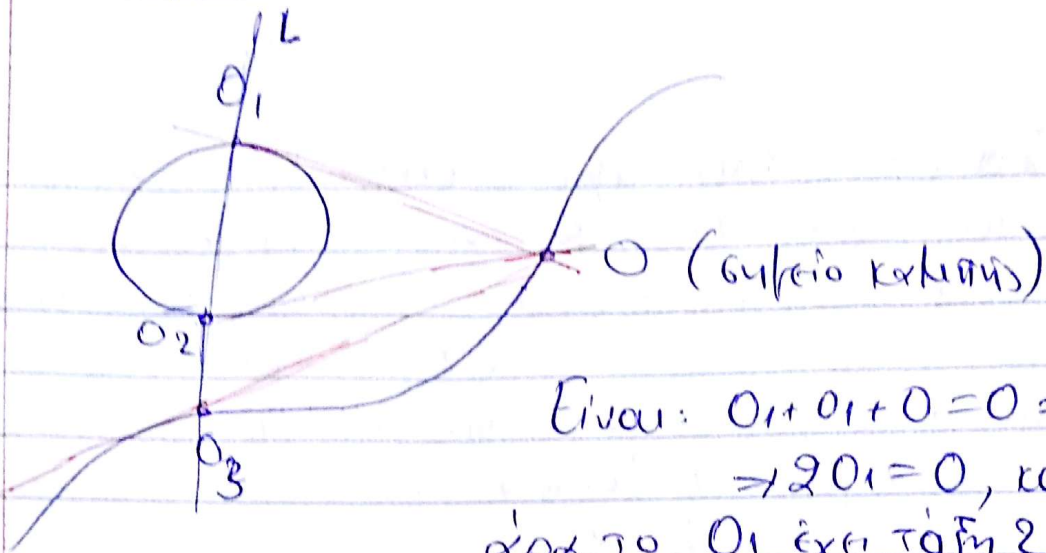 L
O₁
O (σημείο καμπής)
O₂
Είναι: O₁ + O₁ + O = O =
O₃
⇒ 2O₁ = O, κα
άρα το O₁ έχει τάξη 2